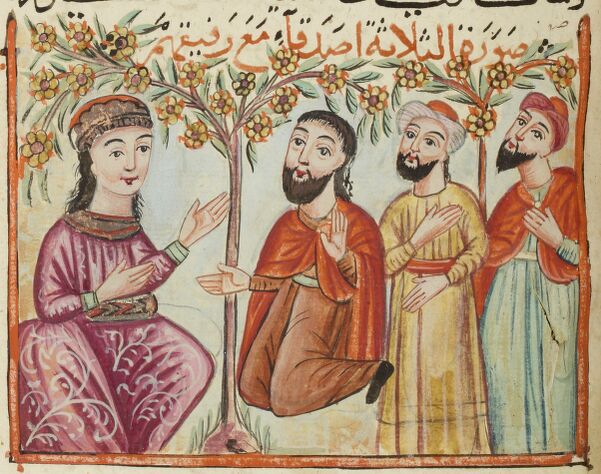 صورة الثلاثة اصدقآء مَعَ رفيقهم